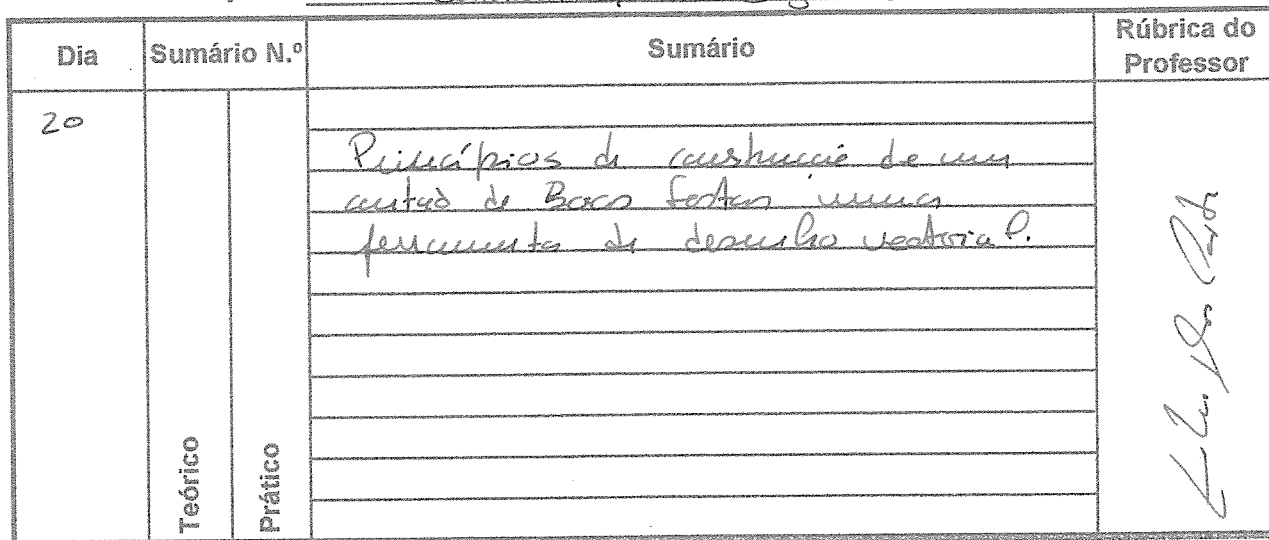 Dia Sumário N.º Sumário Rúbrica do Professor
20
Teórico Prático
Princípios de construção de um
cartão de Boas festas numa
ferramenta de desenho vectorial.